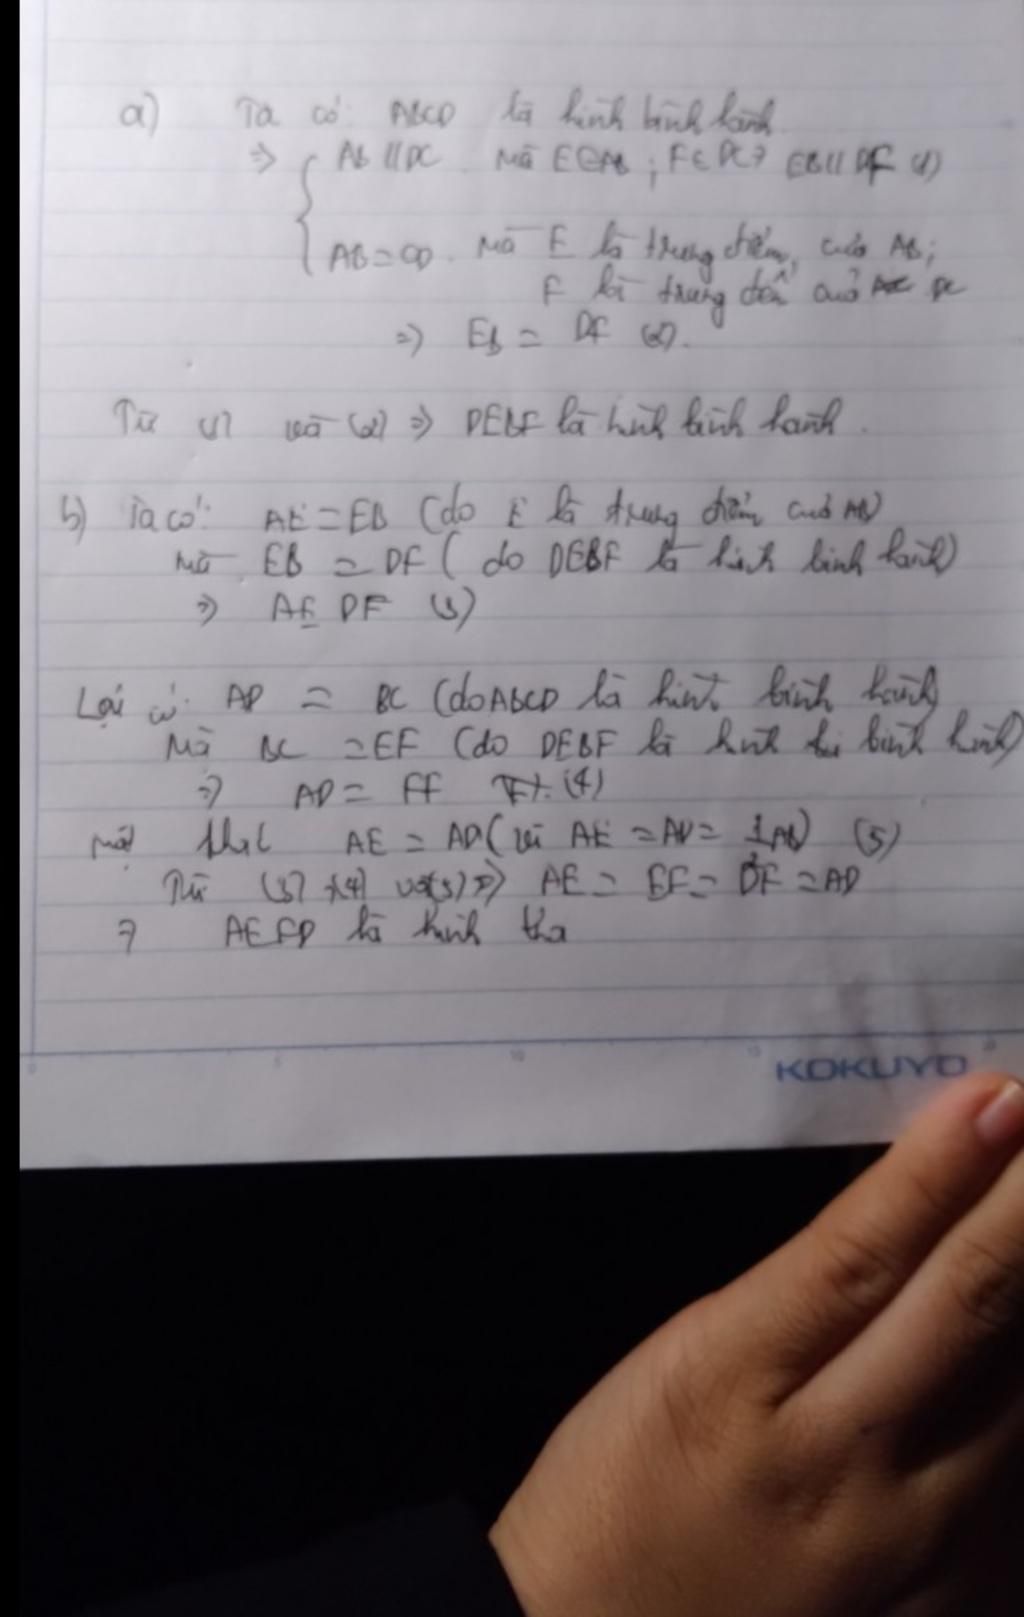 a) Ta có: ABCD là hình bình hành
=> { AB // DC. Mà E∈AB ; F∈DC => EB // DF (1)
AB = CD. Mà E là trung điểm của AB;
F là trung điểm của DC
=> EB = DF (2).
Từ (1) và (2) => DEBF là hình bình hành.
b) Ta có: AE = EB (do E là trung điểm của AB)
Mà EB = DF ( do DEBF là hình bình hành)
=> AE = DF (3)
Lại có: AD = BC (do ABCD là hình bình hành)
Mà BC = EF (do DEBF là hình bình hành)
=> AD = EF (4)
Mặt khác AE = AD ( vì AE = AD = 1/2 AB) (5)
Từ (3) (4) và (5) => AE = EF = DF = AD
=> AEFD là hình tho
0 5 10 15 20
KOKUYO